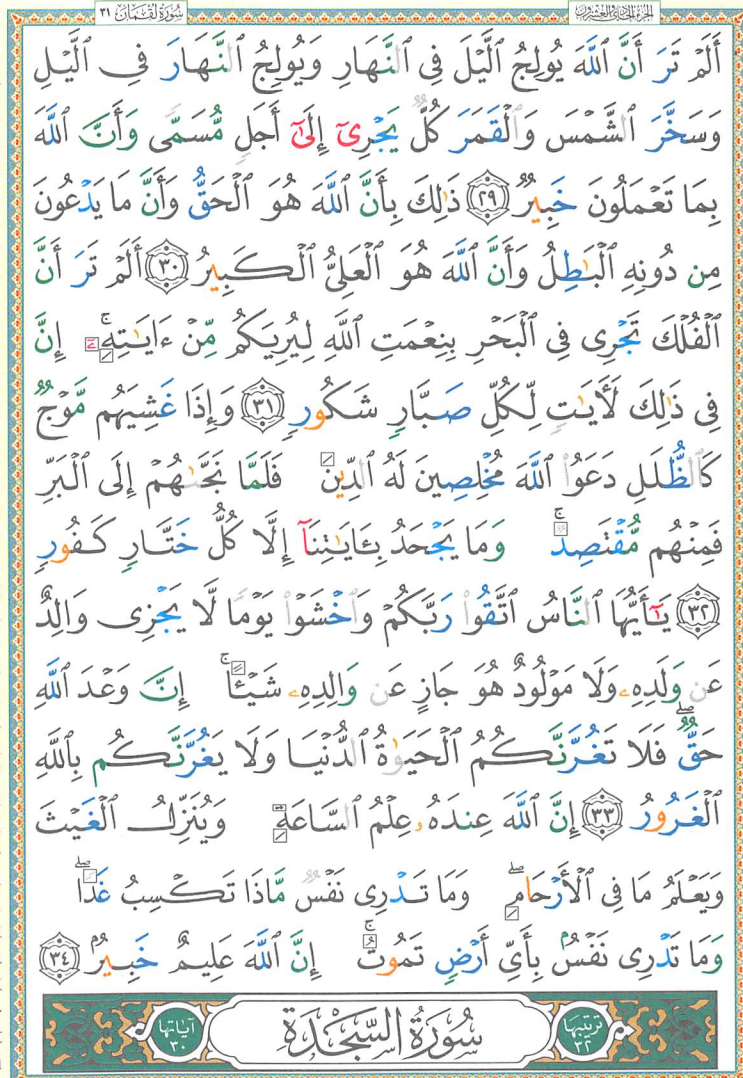 الجزء الحادي والعشرون سُورَةُ لُقْمَان ٣١
أَلَمْ تَرَ أَنَّ ٱللَّهَ يُولِجُ ٱلَّيْلَ فِى ٱلنَّهَارِ وَيُولِجُ ٱلنَّهَارَ فِى ٱلَّيْلِ
وَسَخَّرَ ٱلشَّمْسَ وَٱلْقَمَرَ كُلٌّ يَجْرِىٓ إِلَىٰٓ أَجَلٍ مُّسَمًّى وَأَنَّ ٱللَّهَ
بِمَا تَعْمَلُونَ خَبِيرٌ ٢٩ ذَٰلِكَ بِأَنَّ ٱللَّهَ هُوَ ٱلْحَقُّ وَأَنَّ مَا يَدْعُونَ
مِن دُونِهِ ٱلْبَٰطِلُ وَأَنَّ ٱللَّهَ هُوَ ٱلْعَلِىُّ ٱلْكَبِيرُ ٣٠ أَلَمْ تَرَ أَنَّ
ٱلْفُلْكَ تَجْرِى فِى ٱلْبَحْرِ بِنِعْمَتِ ٱللَّهِ لِيُرِيَكُم مِّنْ ءَايَٰتِهِۦٓۚ إِنَّ
فِى ذَٰلِكَ لَءَايَٰتٍ لِّكُلِّ صَبَّارٍ شَكُورٍ ٣١ وَإِذَا غَشِيَهُم مَّوْجٌ
كَٱلظُّلَلِ دَعَوُا۟ ٱللَّهَ مُخْلِصِينَ لَهُ ٱلدِّينَ فَلَمَّا نَجَّىٰهُمْ إِلَى ٱلْبَرِّ
فَمِنْهُم مُّقْتَصِدٌۚ وَمَا يَجْحَدُ بِـَٔايَٰتِنَآ إِلَّا كُلُّ خَتَّارٍ كَفُورٍ
٣٢ يَٰٓأَيُّهَا ٱلنَّاسُ ٱتَّقُوا۟ رَبَّكُمْ وَٱخْشَوْا۟ يَوْمًا لَّا يَجْزِى وَالِدٌ
عَن وَلَدِهِۦ وَلَا مَوْلُودٌ هُوَ جَازٍ عَن وَالِدِهِۦ شَيْـًٔاۚ إِنَّ وَعْدَ ٱللَّهِ
حَقٌّۖ فَلَا تَغُرَّنَّكُمُ ٱلْحَيَوٰةُ ٱلدُّنْيَا وَلَا يَغُرَّنَّكُم بِٱللَّهِ
ٱلْغَرُورُ ٣٣ إِنَّ ٱللَّهَ عِندَهُۥ عِلْمُ ٱلسَّاعَةِ وَيُنَزِّلُ ٱلْغَيْثَ
وَيَعْلَمُ مَا فِى ٱلْأَرْحَامِۖ وَمَا تَدْرِى نَفْسٌ مَّاذَا تَكْسِبُ غَدًاۖ
وَمَا تَدْرِى نَفْسٌۢ بِأَىِّ أَرْضٍ تَمُوتُۚ إِنَّ ٱللَّهَ عَلِيمٌ خَبِيرٌۢ ٣٤
ترتيبها ٣٢ سُورَةُ السَّجْدَةِ آياتها ٣٠